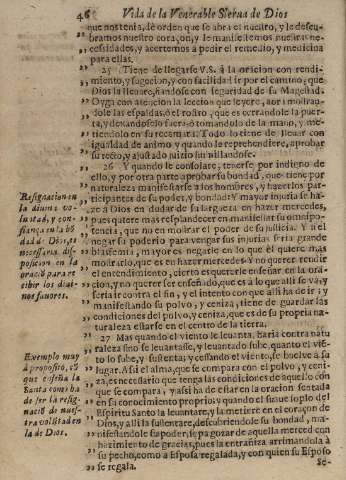 46 Vida de la Venerable Sierua de Dios
que nos tenia, dè orden que se abra el nuestro, y le descu-
bramos nuestro coraçon, y le manifestemos nuestras ne-
cessidades, y acertemos a pedir el remedio, y medicina
para ellas.
25 Tiene de llegarse V.S. à la oracion con rendi-
miento, y sugecion, y con facilidad ir por el camino, que
Dios la lleuare, fiandose con seguridad de su Magestad.
Oyga con atencion la leccion que leyere, aora mostran-
dole las espaldas, ò el rostro, que es cerrandole la puer-
ta, y dexandose fuera; ò tomandole de la mano, y me-
tiendolo en su recamara. Todo lo tiene de lleuar con
igualdad de animo y quando le reprehendiere, aprobar
su recto, y ajustado juizio humillandose.
26 Y quando le consolare, tenerse, por indigno de
ello, y por otra parte aprobar su bondad, que tiene por
naturaleza manifestarse a los hombres, y hazerlos par-
ticipantes de su poder, y bondad: Y mayor injuria se ha-
ze a Dios en dudar de su largueza en hazer mercedes,
pues quiere mas resplandecer en manifestar su omnipo-
tencia, que no en mostrar el poder de su justicia. Y si el
negar su poderio para vengar sus injurias seria grande
blasfemia, mayor es negarle en lo que èl quiere mas
mostrarlo, que es en hazer mercedes: Y no querer rendir
el entendimiento, cierto es querer le enseñar en la ora-
cion, y no querer ser enseñado, que es a lo que alli se và, y
seria ir contra el fin, y el intento con que alli ha de ir: y
manifestando su polvo, y ceniza, tiene de guardar las
condiciones del polvo, y ceniza, que es de su propia na-
turaleza estarse en el centro de la tierra.
27 Mas quando el viento le leuanta, haria contra natu-
raleza sino se leuantasse, y leuantado sube, quanto el viẽ-
to lo sube, y sustenta; y cessando el viento, se buelve a su
lugar. Assi el alma, que se compara con el polvo, y ceni-
za, es necessario que tenga las condiciones de aquello con
que se compara, y assi ha de estar en la oracion sentada
en su conocimiento proprio; y quando el suaue soplo del
Espiritu Santo la leuantare, y la metiere en el coraçon de
Dios, y alli la sustentare, descubriendole su bondad, ma-
nifestandole su poder; sepa gozar de aquella merced con
hazimiento de gracias, pues la entrañiza arrimandola à
su pecho, como a Esposa regalada, y con quien su Esposo
se regala.
Se-
Resignacion en
la diuina vo-
luntad, y con-
fiança en la bõ
dad de Dios, es
necessaria dis-
posicion en la
oraciõ para re
cibir los diui-
nos fauores.
Exemplo muy
à proposito, cõ
que enseña la
Santa como ha
de ser la resig-
naciõ de nues-
tra volũtad en
la de Dios.